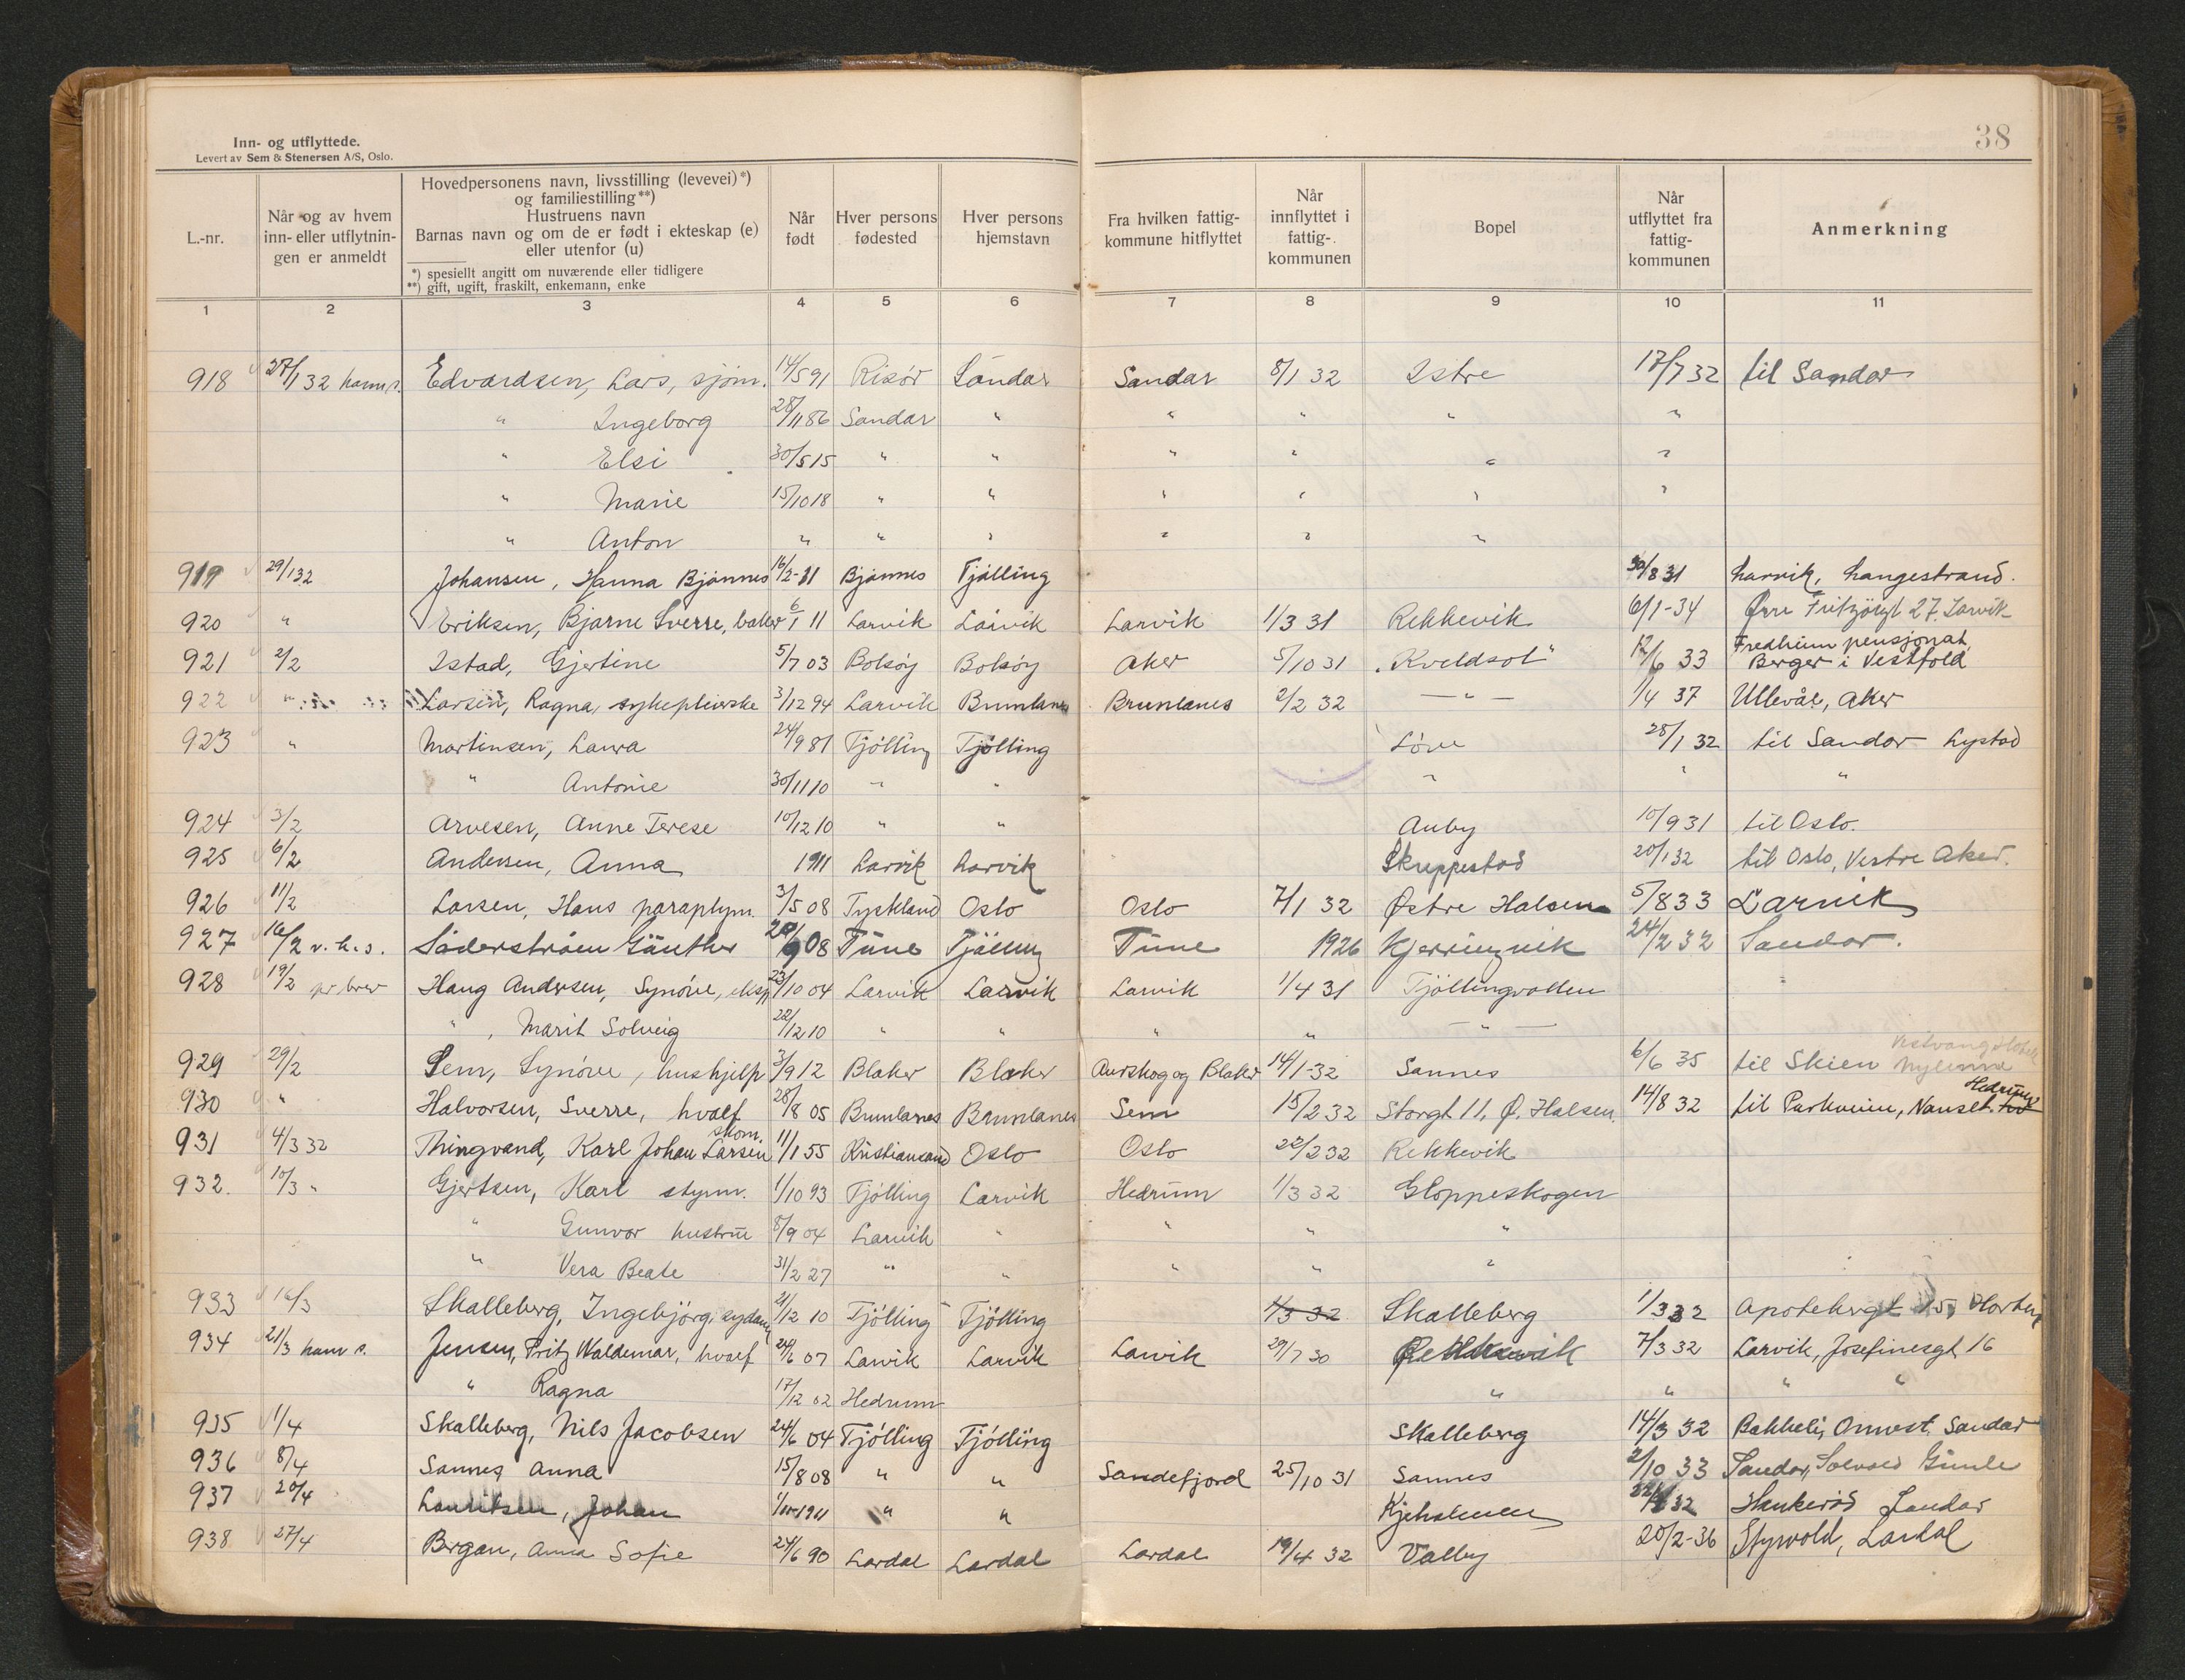 38
Inn- og utflyttede.
Levert av Sem & Stenersen A/S, Oslo.
L.-nr. | Når og av hvem inn- eller utflytningen er anmeldt | Hovedpersonens navn, livsstilling (levevei)*) og familiestilling**) Hustruens navn Barnas navn og om de er født i ekteskap (e) eller utenfor (u) *) spesiellt angitt om nuværende eller tidligere **) gift, ugift, fraskilt, enkemann, enke | Når født | Hver persons fødested | Hver persons hjemstavn | Fra hvilken fattigkommune hitflyttet | Når innflyttet i fattig-kommunen | Bopel | Når utflyttet fra fattig-kommunen | Anmerkning
1 2 3 4 5 6 7 8 9 10 11
918 27/1 32 ham s. Edvardsen, Lars, sjøm. 14/5 91 Risör Sandar Sandar 8/1 32 Istre 17/7 32 til Sandar
" Ingeborg 28/11 86 Sandar " " " " "
" Elsi 30/5 15 " " " " " "
" Marie 15/10 18 " " " " " "
" Anton " " " " " "
919 29/1 32 Johansen, Hanna Bjönnes 16/2-11 Bjönnes Tjölling 30/8 31 Larvik, Langestrand.
920 " Eriksen, Bjarne Sverre, baker 6/1 11 Larvik Larvik Larvik 1/3 31 Rekkevik 6/1-34 Øvre Fritzörgt 27. Larvik
921 2/2 Istad, Gjertine 5/7 03 Bolsöy Bolsöy Aker 5/10 31 "Kveldsol" 12/6 33 Fredheim pensjonat, Berger i Vestfold
922 " Larsen, Ragna, sykepleierske 3/12 94 Larvik Brunlanes Brunlanes 2/2 32 — " — 1/4 37 Ullevål, Aker
923 " Martinsen, Laura 24/9 81 Tjölling Tjölling Löve 28/1 32 til Sandar Lystad
" Antonie 30/11 10 " " " " "
924 3/2 Arvesen, Anne Terese 10/12 10 " " Auby 10/9 31 til Oslo.
925 6/2 Andersen, Anna 1911 Larvik Larvik Skreppestad 20/1 32 til Oslo, Vestre Aker.
926 11/2 Larsen, Hans paraplym. 3/5 08 Tyskland Oslo Oslo 7/1 32 Østre Halsen 5/8 33 Larvik
927 16/2 v. h. s. Söderström Günther 08 Tune Tjölling Tune 1926 Kjerringvik 24/2 32 Sandar.
928 19/2 pr brev Haug Andersen, Synöve, eksp. 23/10 04 Larvik Larvik Larvik 1/4 31 Tjöllingvollen
" , Marit Solveig 22/12 10 " " " " — " —
929 29/2 Sem, Synöve, hushjelp 3/9 12 Blaker Blaker Aurskog og Blaker 14/1-32 Sannes 6/6 35 til Skien
930 " Halvorsen, Sverre, hvalf. 28/8 05 Brunlanes Brunlanes Sem 15/2 32 Storgt 11, Ø. Halsen. 14/8 32 til Parkveien, Nanset. Hedrum
931 4/3 32 Thingvand, Karl Johan Larsen skom. 11/1 55 Kristiansand Oslo Oslo 22/2 32 Rekkevik
932. 10/3 " Gjertsen, Karl styrm. 1/10 93 Tjölling Larvik Hedrum 1/3 32 Gloppeskogen
" Gunvor hustru 8/9 04 Larvik " " " "
" Vera Beate 31/2 27 " " " " "
933 16/3 Skalleberg, Ingebjörg, sydame 21/12 10 Tjölling Tjölling 1/3 32 Skalleberg 1/3 32 Apotekergt 15, Horten
934 21/3 ham s. Jensen, Fritz Waldemar, hvalf 24/6 07 Larvik Larvik Larvik 29/7 30 Rekkevik 7/3 32 Larvik, Josefinesgt 16
" Ragna 17/12 02 Hedrum " " " "
935 1/4 Skalleberg, Nils Jacobsen 24/6 04 Tjölling Tjölling Skalleberg 14/3 32 Bakkeli, Onnest. Sandar
936 8/4 Sannes Anna 15/8 08 " " Sandefjord 25/10 31 Sannes 2/10 33 Sandar, Solvold Gimle
937 20/4 Lauritsen, Johan 1911 " " Kjeholmen 32 Haukeröd Sandar
938 27/4 Bergan, Anna Sofie 24/6 90 Lardal Lardal Lardal 19/4 32 Valby 20/2-36 Styrvold, Lardal